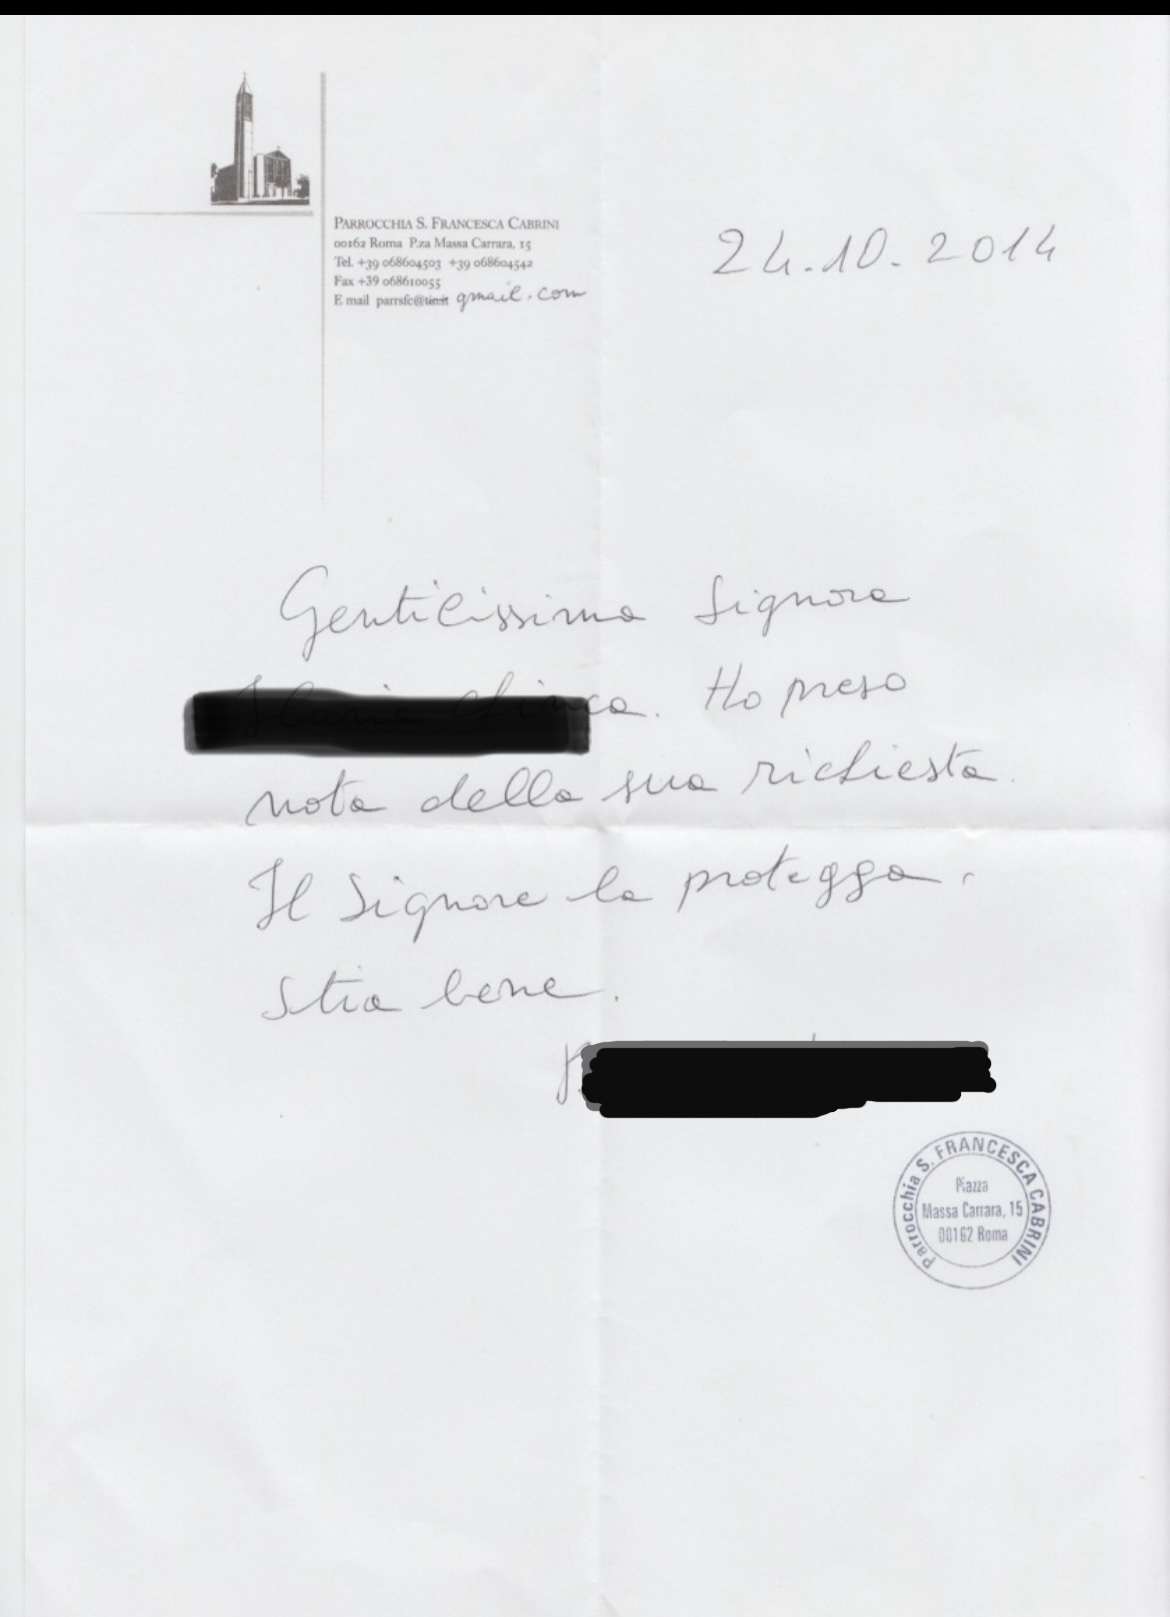 PARROCCHIA S. FRANCESCA CABRINI
00162 Roma P.za Massa Carrara, 15
Tel. +39 068604503 +39 068604542
Fax +39 068610055
E mail parrsfc@tin.it gmail.com
24.10.2014
Gentilissima Signora
Ho preso
nota della sua richiesta.
Il Signore la protegga.
Stia bene.
Parrocchia S. FRANCESCA CABRINI
Piazza
Massa Carrara, 15
00162 Roma